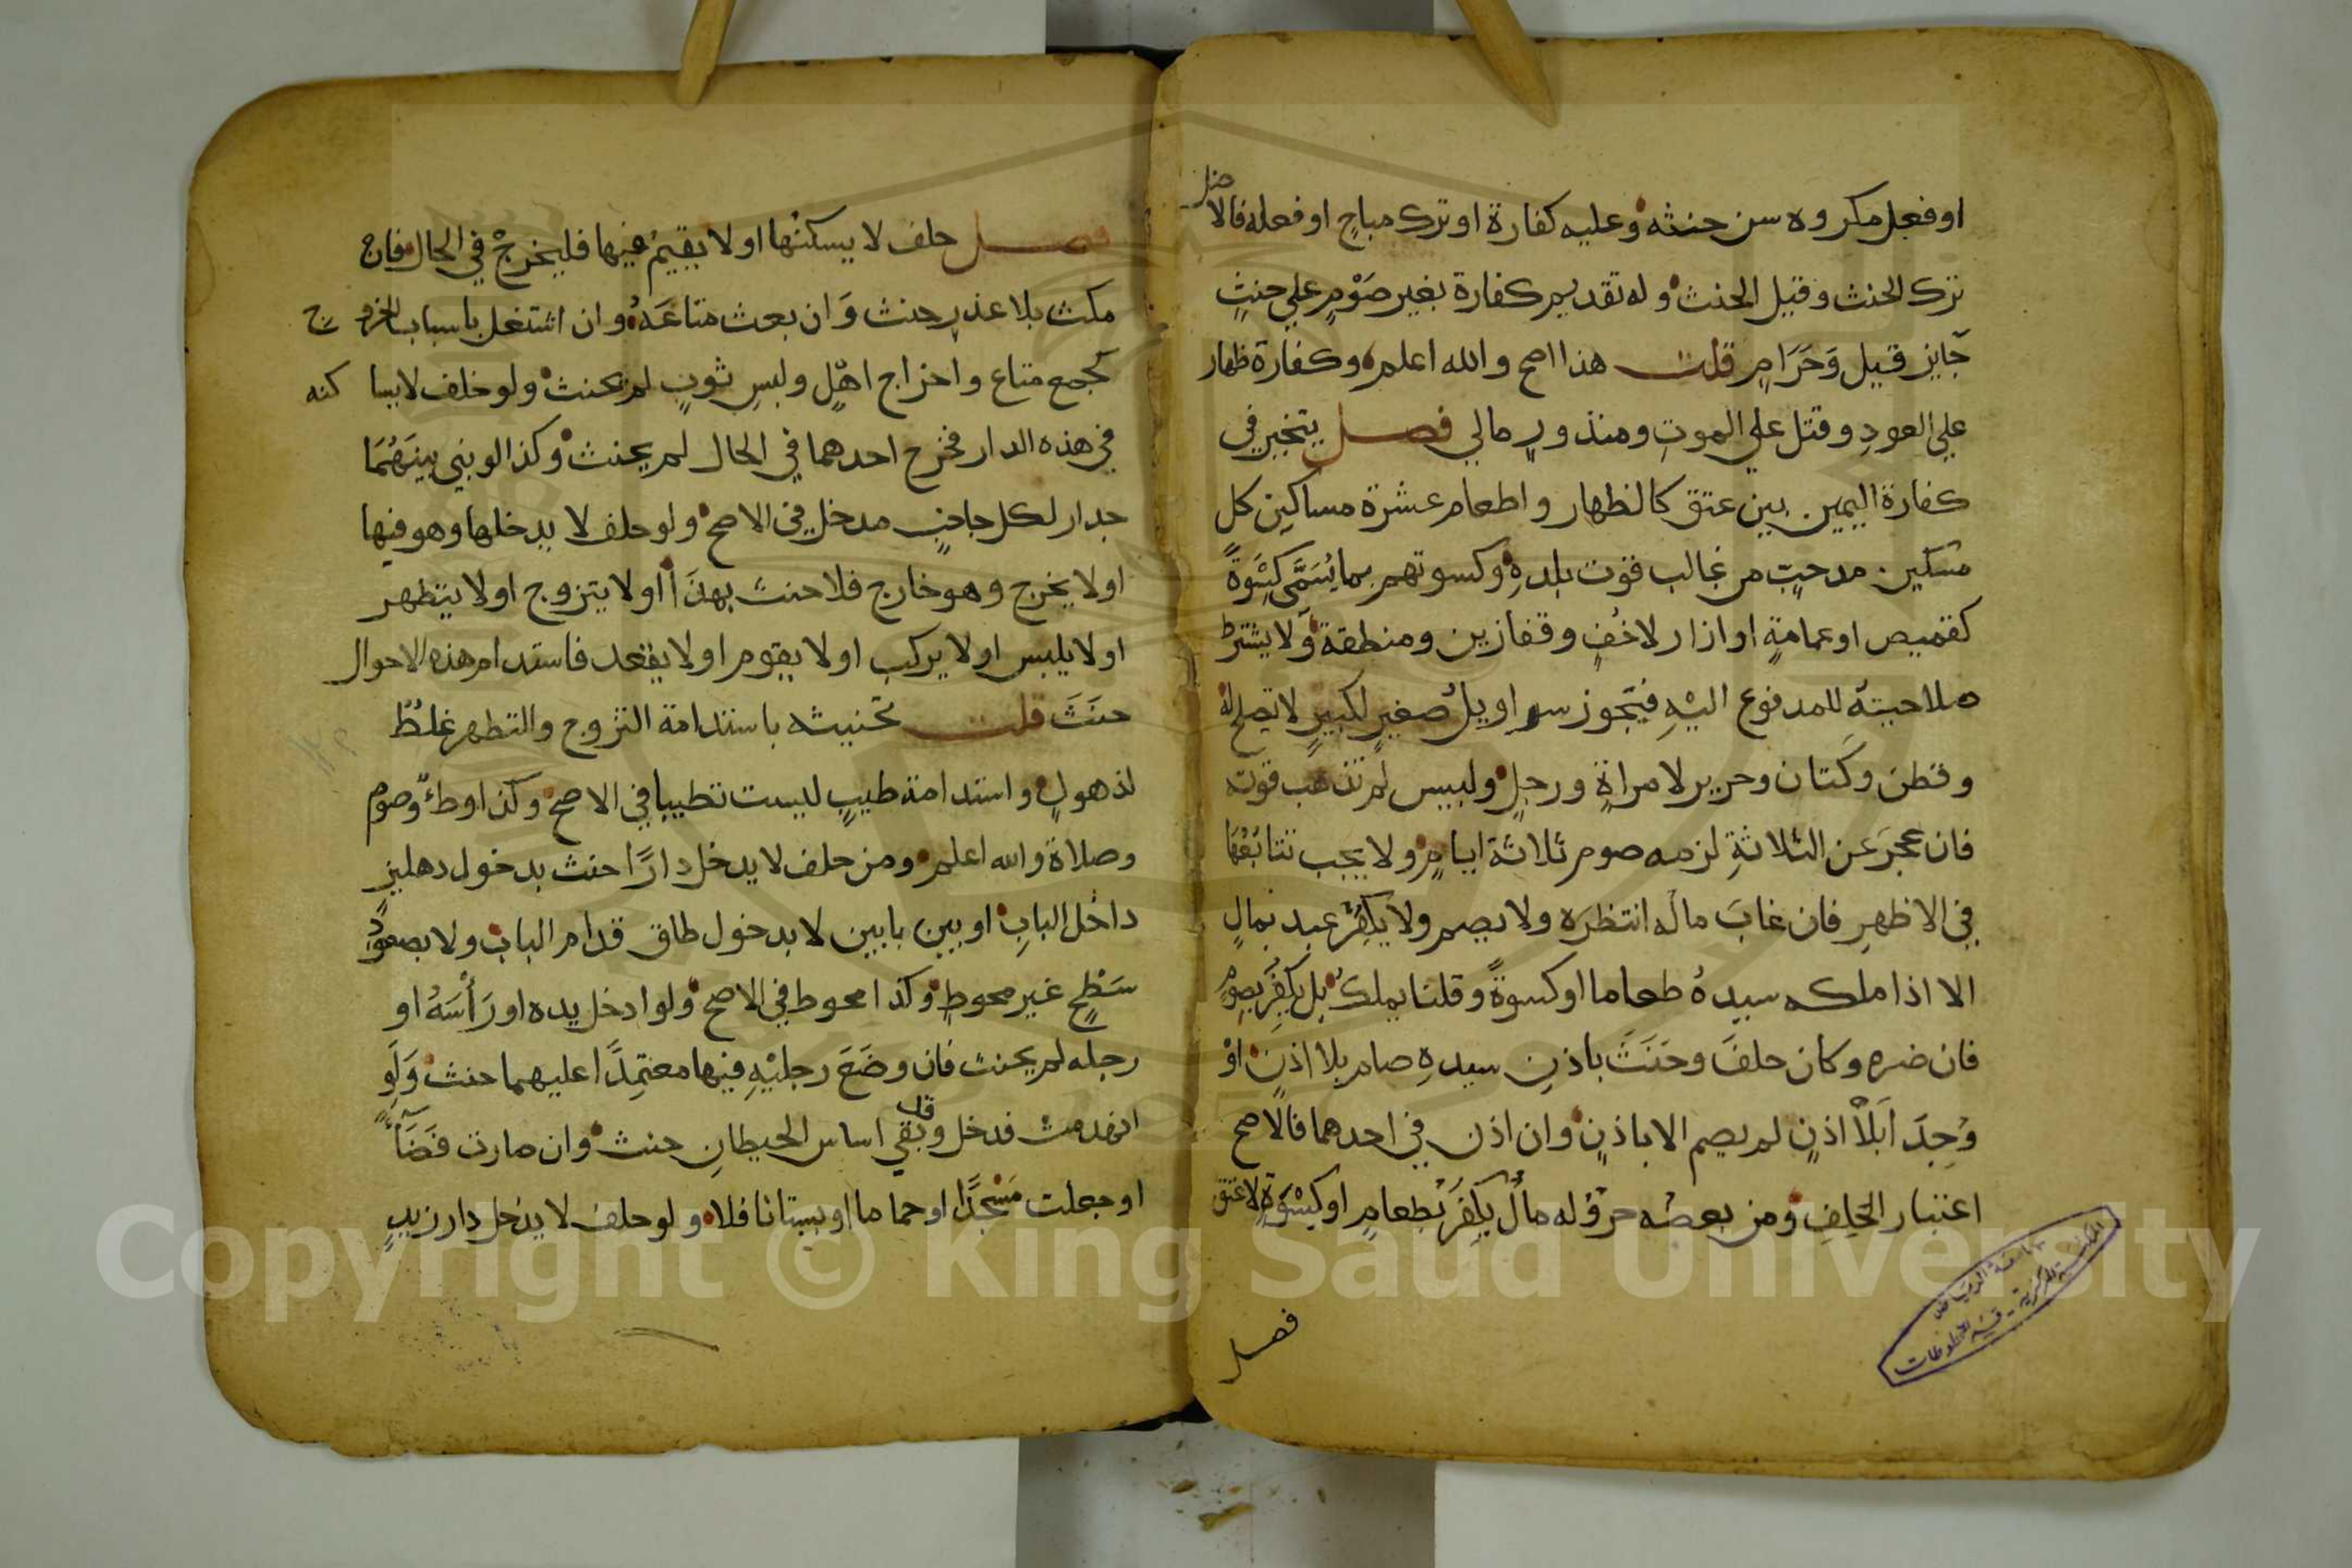 او فعل مكروه سن حنثه وعليه كفارة او ترك مباح او فعله فالافضل
ترك الحنث وقيل الحنث وله تقديم كفارة بغير صَوْمٍ علي حنثٍ
جَايز قيل وَحَرَامٍ قلت هذا اصح والله اعلم وكفارة ظهار
علي العودِ وقتل علي الموتِ ومنذورٍ مالي فصل يتخير في
كفارة اليمين بين عتق كالظهار واطعام عشرة مساكين كل
مسكين مد حبٍ من غالب قوت بلدهِ وكسوتهم بما يُسَمَّى كِسْوَةً
كقميص او عمامةٍ او ازار لا خُفٍ وقفازين ومنطقة وَلا يشترط
صلاحيتهُ للمدفوع اليْهِ فيَجوز سراويلُ صغيرٍ لكبيرٍ لا تصلح له
وقطن وكَتان وحرير لامراةٍ ورجلٍ ولبيس لم تذهب قوته
فان عجَزَ عَن الثلاثةِ لزمه صوم ثلاثة ايامٍ ولا يجب تتابُعُهَا
في الاظهرِ فان غابَ ماله انتظرَه ولا يصم ولا يكفِرُ عبد بمالٍ
الا اذا ملكه سيدهُ طعاما او كسوةً وقلنا يملكُ بل يكفِرُ بصومٍ
فان ضره وكان حلفَ وحَنَثَ باذنِ سيدهِ صام بلا اذنٍ اوْ
وُجِدَا بَلَا اذنٍ لم يصم الا باذنٍ وان اذن في احدهما فالاصح
اعتبار الحَلِفِ ومن بعضُه حرٌ وله مالٌ يكفِرُ بطعامٍ او كِسْوَةٍ لا عتق
فصل
المكتبة المركزية - قسم المخطوطات
فصل حلف لا يسكنها او لا يقيمُ فيها فليخرجْ في الحال فان
مكث بلا عذرٍ حنث وَان بعث متاعَهُ وان اشتغل باسباب الخروج
كجمع متاع واخراج اهلٍ ولبسِ ثوبٍ لم يحنث ولو حلف لا يساكنه
في هذه الدار فخرج احدهما في الحال لم يحنث وكذا لو بني بينَهُمَا
جدار لكل جانبٍ مدخل في الاصح ولو حلف لا يدخلها وهو فيها
او لا يخرج وهو خارج فلا حنث بهذَا او لا يتزوج او لا يتطهر
او لا يلبس او لا يركب او لا يقوم او لا يقعد فاستدام هذه الاحوال
حنَثَ قلت تحنيثه باستدامة التزوج والتطهر غلطٌ
لذهولٍ واستدامة طيبٍ ليست تطيبا في الاصح وكذا وطءٌ وصوم
وصلاة والله اعلم ومن حلف لا يدخل دارًا حنث بدخول دهليزٍ
داخل البابِ او بين بابين لا بدخول طاق قدام الباب ولا بصعودٍ
سَطْحٍ غير محوطٍ وكذا محوط في الاصح ولو ادخل يده او رَأْسَهُ او
رجله لم يحنث فان وضَعَ رجليْهِ فيها معتمِدًا عليهما حنث وَلَو
انهدمت فدخل وقد بقي اساس الحيطانِ حنث وان صارت فَضَآءً
او جعلت مَسْجدًا او حماما او بستانا فلا ولو حلف لا يدخل دار زيدٍ
Copyright © King Saud University